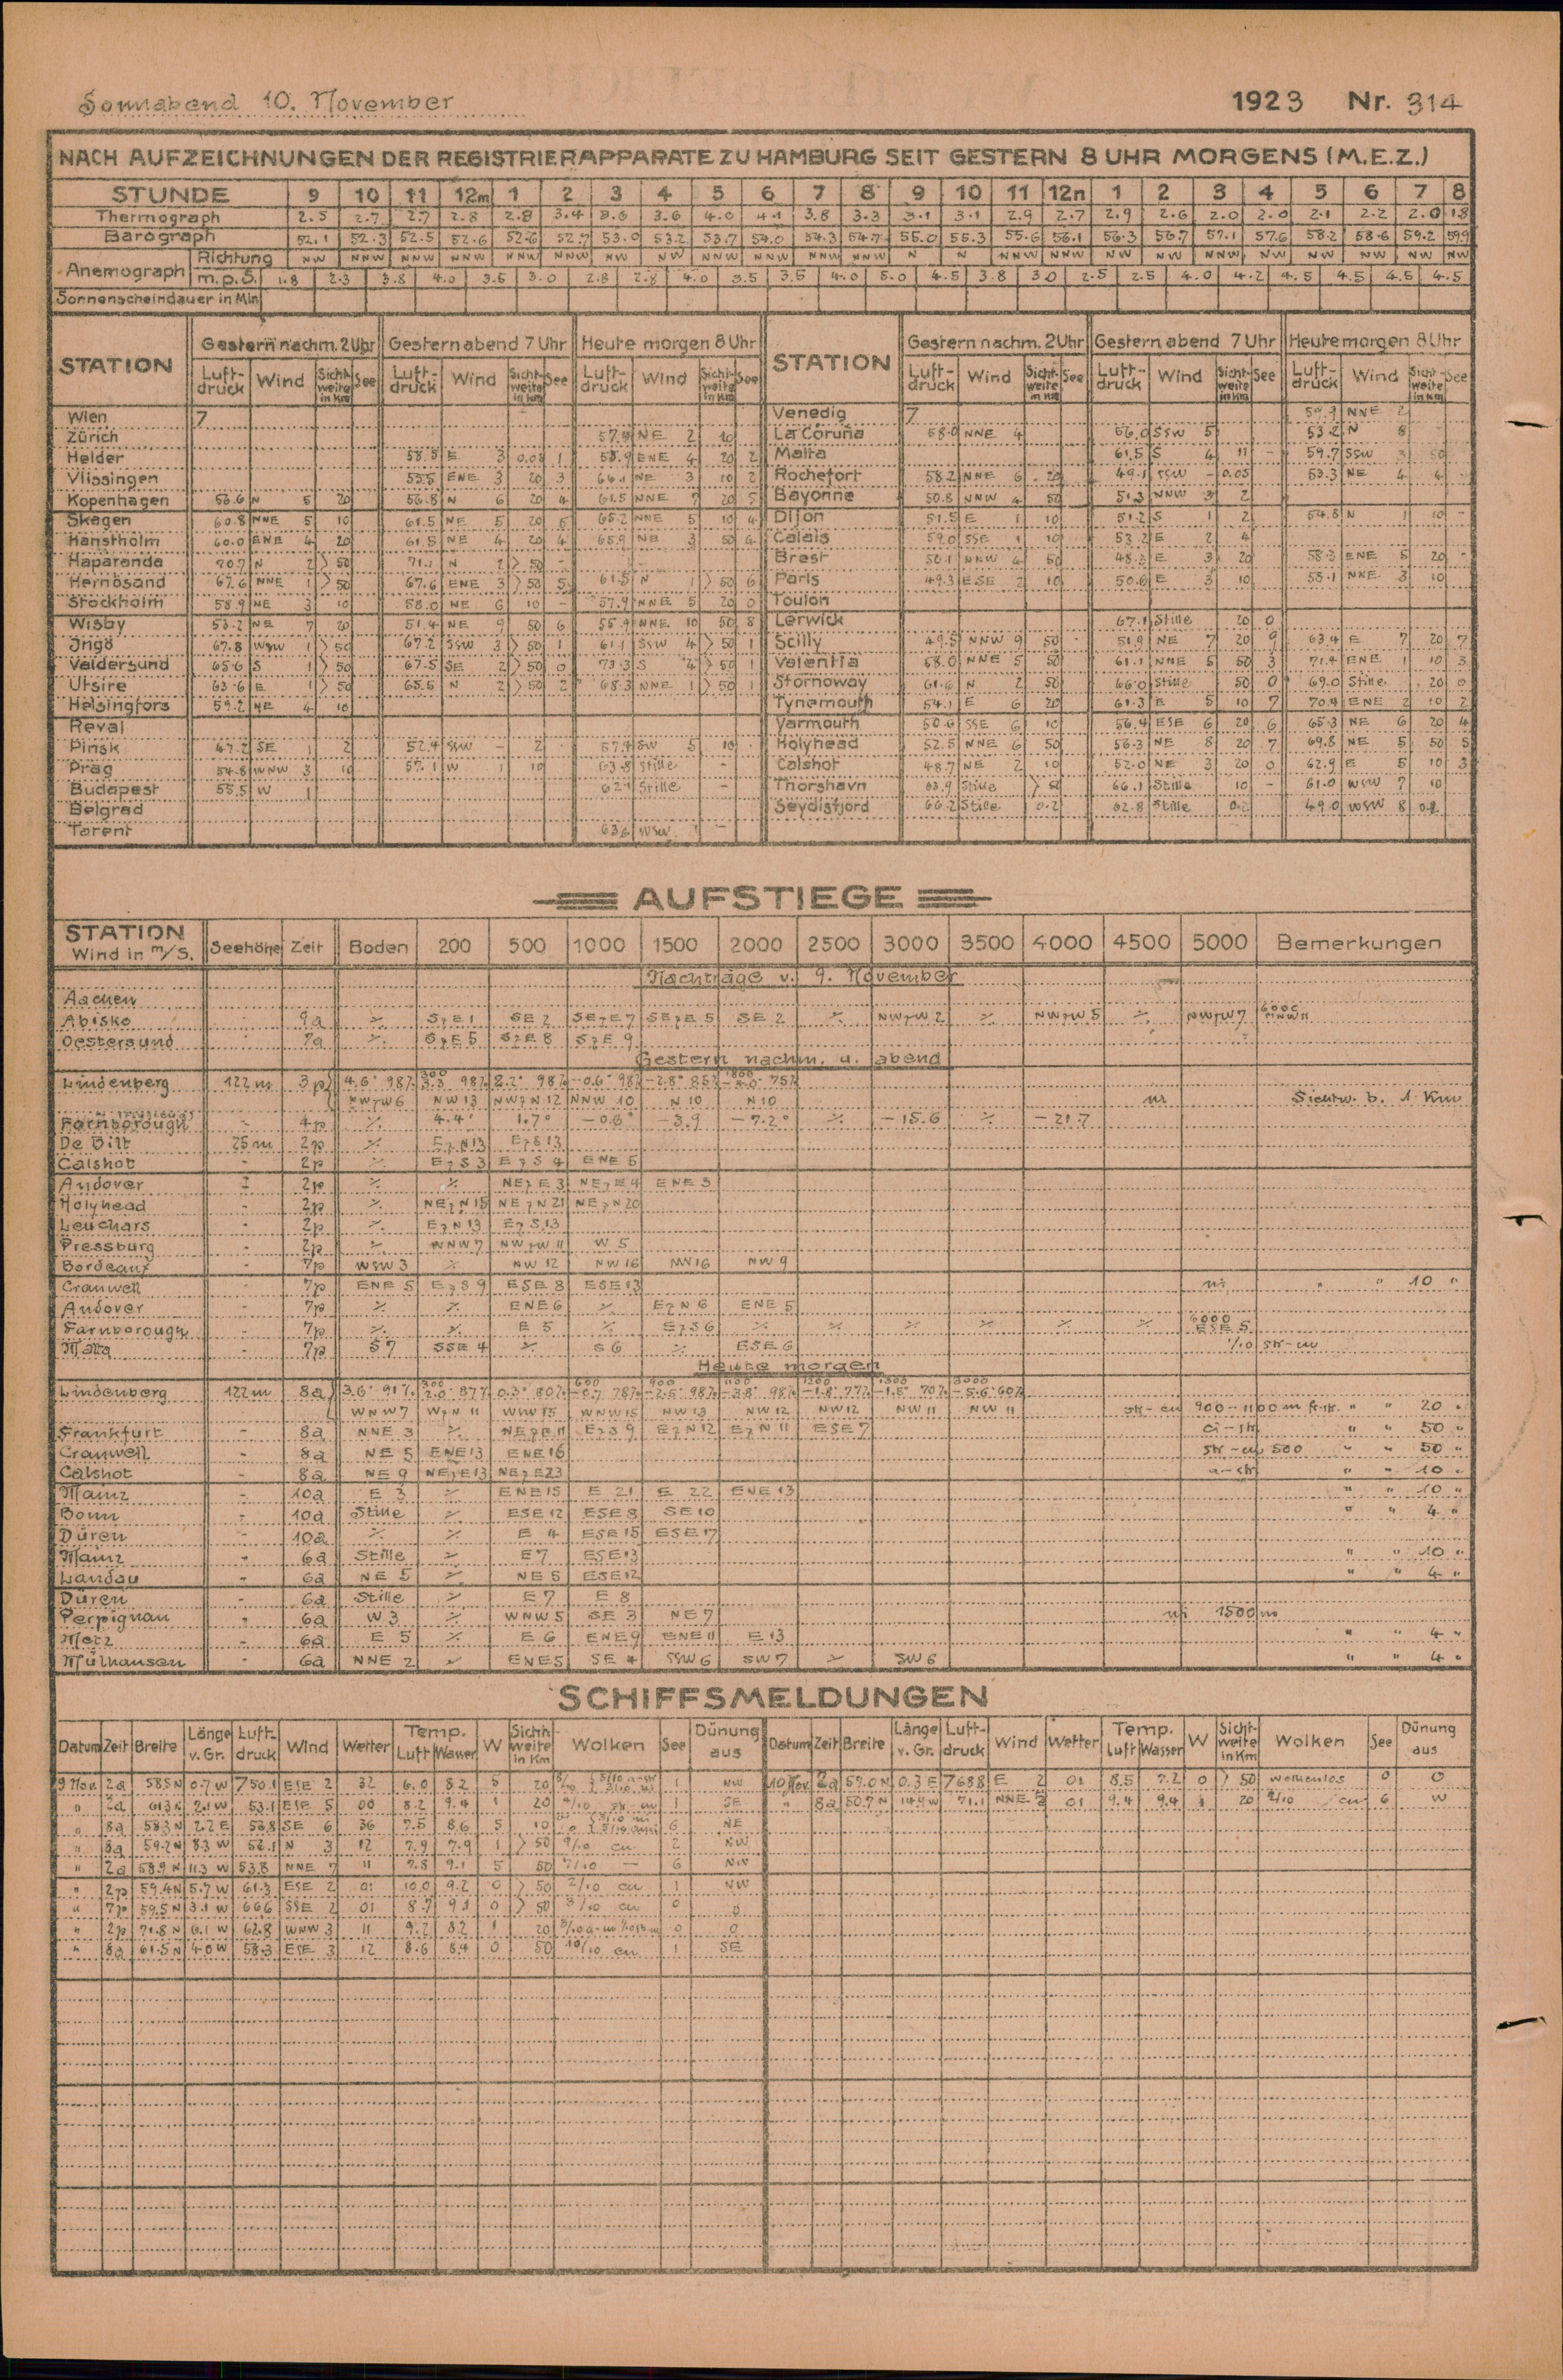 Sonnabend 10. November 1923 Nr. 314
NACH AUFZEICHNUNGEN DER REGISTRIERAPPARATE ZU HAMBURG SEIT GESTERN 8 UHR MORGENS (M.E.Z.)
STUNDE 9 10 11 12m 1 2 3 4 5 6 7 8 9 10 11 12n 1 2 3 4 5 6 7 8
Thermograph 2.5 2.7 2.7 2.8 2.8 3.4 3.6 3.6 4.0 4.1 3.8 3.3 3.1 3.1 2.9 2.7 2.9 2.6 2.0 2.0 2.1 2.2 2.0 1.8
Barograph 52.1 52.3 52.5 52.6 52.6 52.7 53.0 53.2 53.7 54.0 54.3 54.7 55.0 55.3 55.6 56.1 56.3 56.7 57.1 57.6 58.2 58.6 59.2 59.9
Anemograph Richtung NW NNW NNW NNW NNW NNW NW NW NNW NNW NNW NNW N N NNW NNW NW NW NW NW NW NW NW NW
m.p.S. 1.8 2.3 3.8 4.0 3.5 3.0 2.8 2.8 4.0 3.5 3.5 4.0 5.0 4.5 3.8 3.0 2.5 2.5 4.0 4.2 4.5 4.5 4.5 4.5
Sonnenscheindauer in Min
STATION Gestern nachm. 2 Uhr Gestern abend 7 Uhr Heute morgen 8 Uhr STATION Gestern nachm. 2 Uhr Gestern abend 7 Uhr Heute morgen 8 Uhr
Luftdruck Wind Sichtweite in Km See Luftdruck Wind Sichtweite in Km See Luftdruck Wind Sichtweite in Km See Luftdruck Wind Sichtweite in Km See Luftdruck Wind Sichtweite in Km See Luftdruck Wind Sichtweite in Km See
Wien 7 Venedig 7 NNE 2
Zürich NE 2 La Coruña 58.0 NNE 4 56.0 SSW 5 53.2 N 8
Helder 58.5 E 3 1 58.9 ENE 4 20 2 Malta 61.5 S 4 11 - 59.7 SSW 3 50
Vlissingen 55.5 ENE 3 20 3 NE 3 10 2 Rochefort 58.2 NNE 6 20 49.1 SSW - 0.05 53.3 NE 4 4
Kopenhagen 56.6 N 5 20 56.8 N 6 20 4 61.5 NNE 7 20 5 Bayonne 50.8 NNW 4 50 51.3 NNW 3 2
Skagen 60.8 NNE 5 10 61.5 NE 5 20 5 65.2 NNE 5 10 4 Dijon 51.5 E 1 10 51.2 S 1 2 54.8 N 1 10 -
Hanstholm 60.0 ENE 4 20 61.5 NE 4 20 4 65.9 NE 3 50 4 Calais 59.0 SSE 1 10 53.2 E 2 4
Haparanda 70.7 N 2 > 50 71.1 N 2 > 50 - Brest 50.1 NNW 4 50 48.3 E 3 20 58.3 ENE 5 20 -
Hernösand 67.6 NNE 1 > 50 67.6 ENE 3 > 50 5 61.5 N 1 > 50 6 Paris 49.3 ESE 2 10 50.6 E 3 10 55.1 NNE 3 10
Stockholm 58.9 NE 3 10 58.0 NE 6 10 - 57.9 NNE 5 20 0 Toulon
Wisby 53.2 NE 7 20 51.4 NE 9 50 6 55.9 NNE 10 50 8 Lerwick 67.1 Stille 20 0
Ingö 67.8 WSW 1 > 50 67.2 SSW 3 > 50 1 61.1 SSW 4 > 50 1 Scilly 49.5 NNW 9 50 51.9 NE 7 20 9 63.4 E 7 20 7
Valdersund 65.6 S 1 > 50 67.5 SE 2 > 50 0 73.3 S 4 > 50 1 Valentia 58.0 NNE 5 50 61.1 NNE 5 50 3 71.4 ENE 1 10 3
Utsire 63.6 E 1 > 50 65.5 N 2 > 50 2 68.3 NNE 1 > 50 1 Stornoway 61.6 N 2 50 66.0 Stille 50 0 69.0 Stille 20 0
Helsingfors 59.2 NE 4 10 Tynemouth 54.1 E 6 20 61.3 E 5 10 7 70.4 ENE 2 10 2
Reval Yarmouth 50.6 SSE 6 10 56.4 ESE 6 20 6 65.3 NE 6 20 4
Pinsk 47.2 SE 1 2 52.4 SSW - 2 57.4 SW 5 10 Holyhead 52.5 NNE 6 50 56.3 NE 8 20 7 69.8 NE 5 50 5
Prag 54.8 WNW 3 10 57.1 W 1 10 63.8 Stille - Calshot 48.7 NE 2 10 52.0 NE 3 20 0 62.9 E 5 10 3
Budapest 55.5 W 1 62.1 Stille - Thorshavn 63.9 Stille > 50 66.1 Stille 10 - 61.0 WSW 7 10
Belgrad Seydisfjord 66.2 Stille 0.2 62.8 Stille 0.2 49.0 WSW 8 0.2
Tarent 63.6 WSW 1 -
AUFSTIEGE
STATION Wind in m/S. Seehöhe Zeit Boden 200 500 1000 1500 2000 2500 3000 3500 4000 4500 5000 Bemerkungen
Nachträge v. 9. November
Aachen
Abisko 9a ⁒ SzE 1 SE 2 SEzE 7 SEzE 5 SE 2 ⁒ NWzW 2 ⁒ NWzW 5 ⁒ NWzW 7 6000
Oestersund 7a ⁒ SzE 5 SzE 8 SzE 9
Gestern nachm. u. abend
Lindenberg 122 m 3p 4.6° 98% 300 3.3 98% 2.2° 98% -0.6° 98% -2.8° 85% 1800 -4.0° 75%
NWzW 6 NW 13 NWzN 12 NNW 10 N 10 N 10 ni Sichtw. b. 1 Km
Farnborough - 4p ⁒ 4.4° 1.7° -0.6° -3.9 -7.2° ⁒ -15.6 ⁒ -21.7
De Bilt 25 m 2p ⁒ EzN 13 EzS 13
Calshot - 2p ⁒ EzS 3 EzS 4 ENE 5
Andover - 2p ⁒ ⁒ NEzE 3 NEzE 4 ENE 5
Holyhead - 2p ⁒ NEzN 15 NEzN 21 NEzN 20
Leuchars - 2p ⁒ EzN 13 EzS 13
Pressburg - 2p ⁒ WNW 7 NWzW 11 W 5
Bordeaux - 7p WSW 3 ⁒ NW 12 NW 16 NW 16 NW 9
Cranwell - 7p ENE 5 EzS 9 ESE 8 ESE 13 ni " " 10 "
Andover - 7p ⁒ ⁒ ENE 6 ⁒ EzN 6 ENE 5
Farnborough - 7p ⁒ ⁒ E 5 ⁒ EzS 6 ⁒ ⁒ ⁒ ⁒ ⁒ ⁒ 6000 ESE 5
Malta - 7p S 7 SSE 4 ⁒ S 6 ⁒ ESE 6 1/10 str-cu
Heute morgen
Lindenberg 122 m 8a 3.6° 91% 300 2.0° 87% 0.3° 80% 600 -0.7 78% 900 -2.5° 98% 1100 -3.8° 98% 1200 -1.8° 77% 1300 -1.5° 70% 3000 -5.6° 60%
WNW 7 WzN 11 WNW 15 WNW 15 NW 13 NW 12 NW 12 NW 11 NW 11 str-cu 900-1100 m " " 20 "
Frankfurt - 8a NNE 3 ⁒ NEzE 11 EzS 9 EzN 12 EzN 11 ESE 7 ci-str " " 50 "
Cranwell - 8a NE 5 ENE 13 ENE 16 str-cu 500 " " 50 "
Calshot - 8a NE 9 NEzE 13 NEzE 23 a-str " " 10 "
Mainz - 10a E 3 ⁒ ENE 15 E 21 E 22 ENE 13 " " 10 "
Bonn - 10a Stille ⁒ ESE 12 ESE 8 SE 10 " " 4 "
Düren - 10a ⁒ ⁒ E 4 ESE 15 ESE 17
Mainz - 6a Stille ⁒ E 7 ESE 13 " " 10 "
Landau - 6a NE 5 ⁒ NE 5 ESE 12 " " 4 "
Düren - 6a Stille ⁒ E 7 E 8
Perpignan - 6a W 3 ⁒ WNW 5 SE 3 NE 7 ni 1500 m
Metz - 6a E 5 ⁒ E 6 ENE 9 ENE 11 E 13 " " 4 "
Mülhausen - 6a NNE 2 ⁒ ENE 5 SE 4 SSW 6 SW 7 ⁒ SW 6 " " 4 "
SCHIFFSMELDUNGEN
Datum Zeit Breite Länge v. Gr. Luftdruck Wind Wetter Temp. Luft Wasser W Sichtweite in Km Wolken See Dünung aus Datum Zeit Breite Länge v. Gr. Luftdruck Wind Wetter Temp. Luft Wasser W Sichtweite in Km Wolken See Dünung aus
9 Nov. 2a 58.5 N 0.7 W 750.1 ESE 2 32 6.0 8.2 5 20 1 NW 10 Nov. 2a 57.0 N 0.3 E 768.8 E 2 01 8.5 7.2 0 > 50 wolkenlos 0 0
" 2a 61.3 N 2.1 W 53.1 ESE 5 00 8.2 9.4 1 20 1 SE " 8a 50.7 N 14.9 W 71.1 NNE 2 01 9.4 9.4 1 20 2/10 cu 6 W
" 8a 58.3 N 2.2 E 53.8 SE 6 36 7.5 8.6 5 10 6 NE
" 8a 59.2 N 8.3 W 56.1 N 3 12 7.9 7.9 1 > 50 9/10 cu 2 NW
" 2a 58.9 N 11.3 W 53.8 NNE 7 11 7.8 9.1 5 50 7/10 — 6 NW
" 2p 59.4 N 5.7 W 61.3 ESE 2 01 10.0 9.2 0 > 50 2/10 cu 1 NW
" 7p 59.5 N 3.1 W 66.6 SSE 2 01 8.7 9.1 0 > 50 3/10 cu 0 0
" 2p 71.8 N 6.1 W 62.8 WNW 3 11 9.2 8.2 1 20 0 0
" 8a 61.5 N 4.0 W 58.3 ESE 3 12 8.6 8.9 0 50 10/10 cu 1 SE